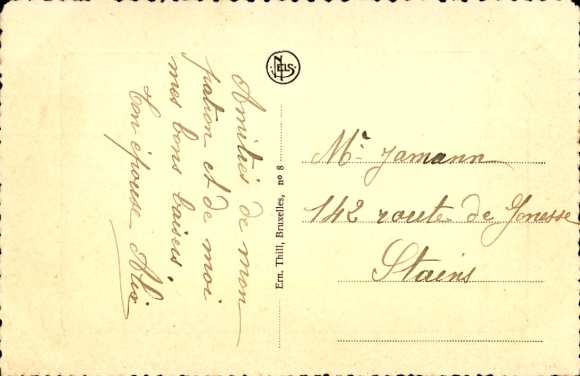 Amitiés de mon
patron et de moi
mes bons baisers.
Ton épouse Alix
NELS
Ern. Thill, Bruxelles, nº 8
Mr. Jamann
142 route de Gonesse
Stains